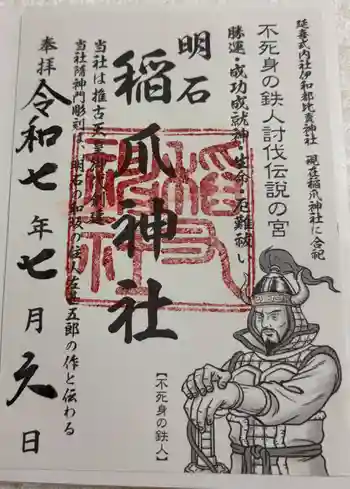 延喜式内社伊和都比売神社 現在稲爪神社に合祀
不死身の鉄人討伐伝説の宮
勝運・成功成就神・生命・厄難祓い
明石
稲爪神社
当社は推古天皇御代創建
当社随神門彫刻は、明石の和坂の住人左甚五郎の作と伝わる
奉拝
令和七年七月六日
【不死身の鉄人】